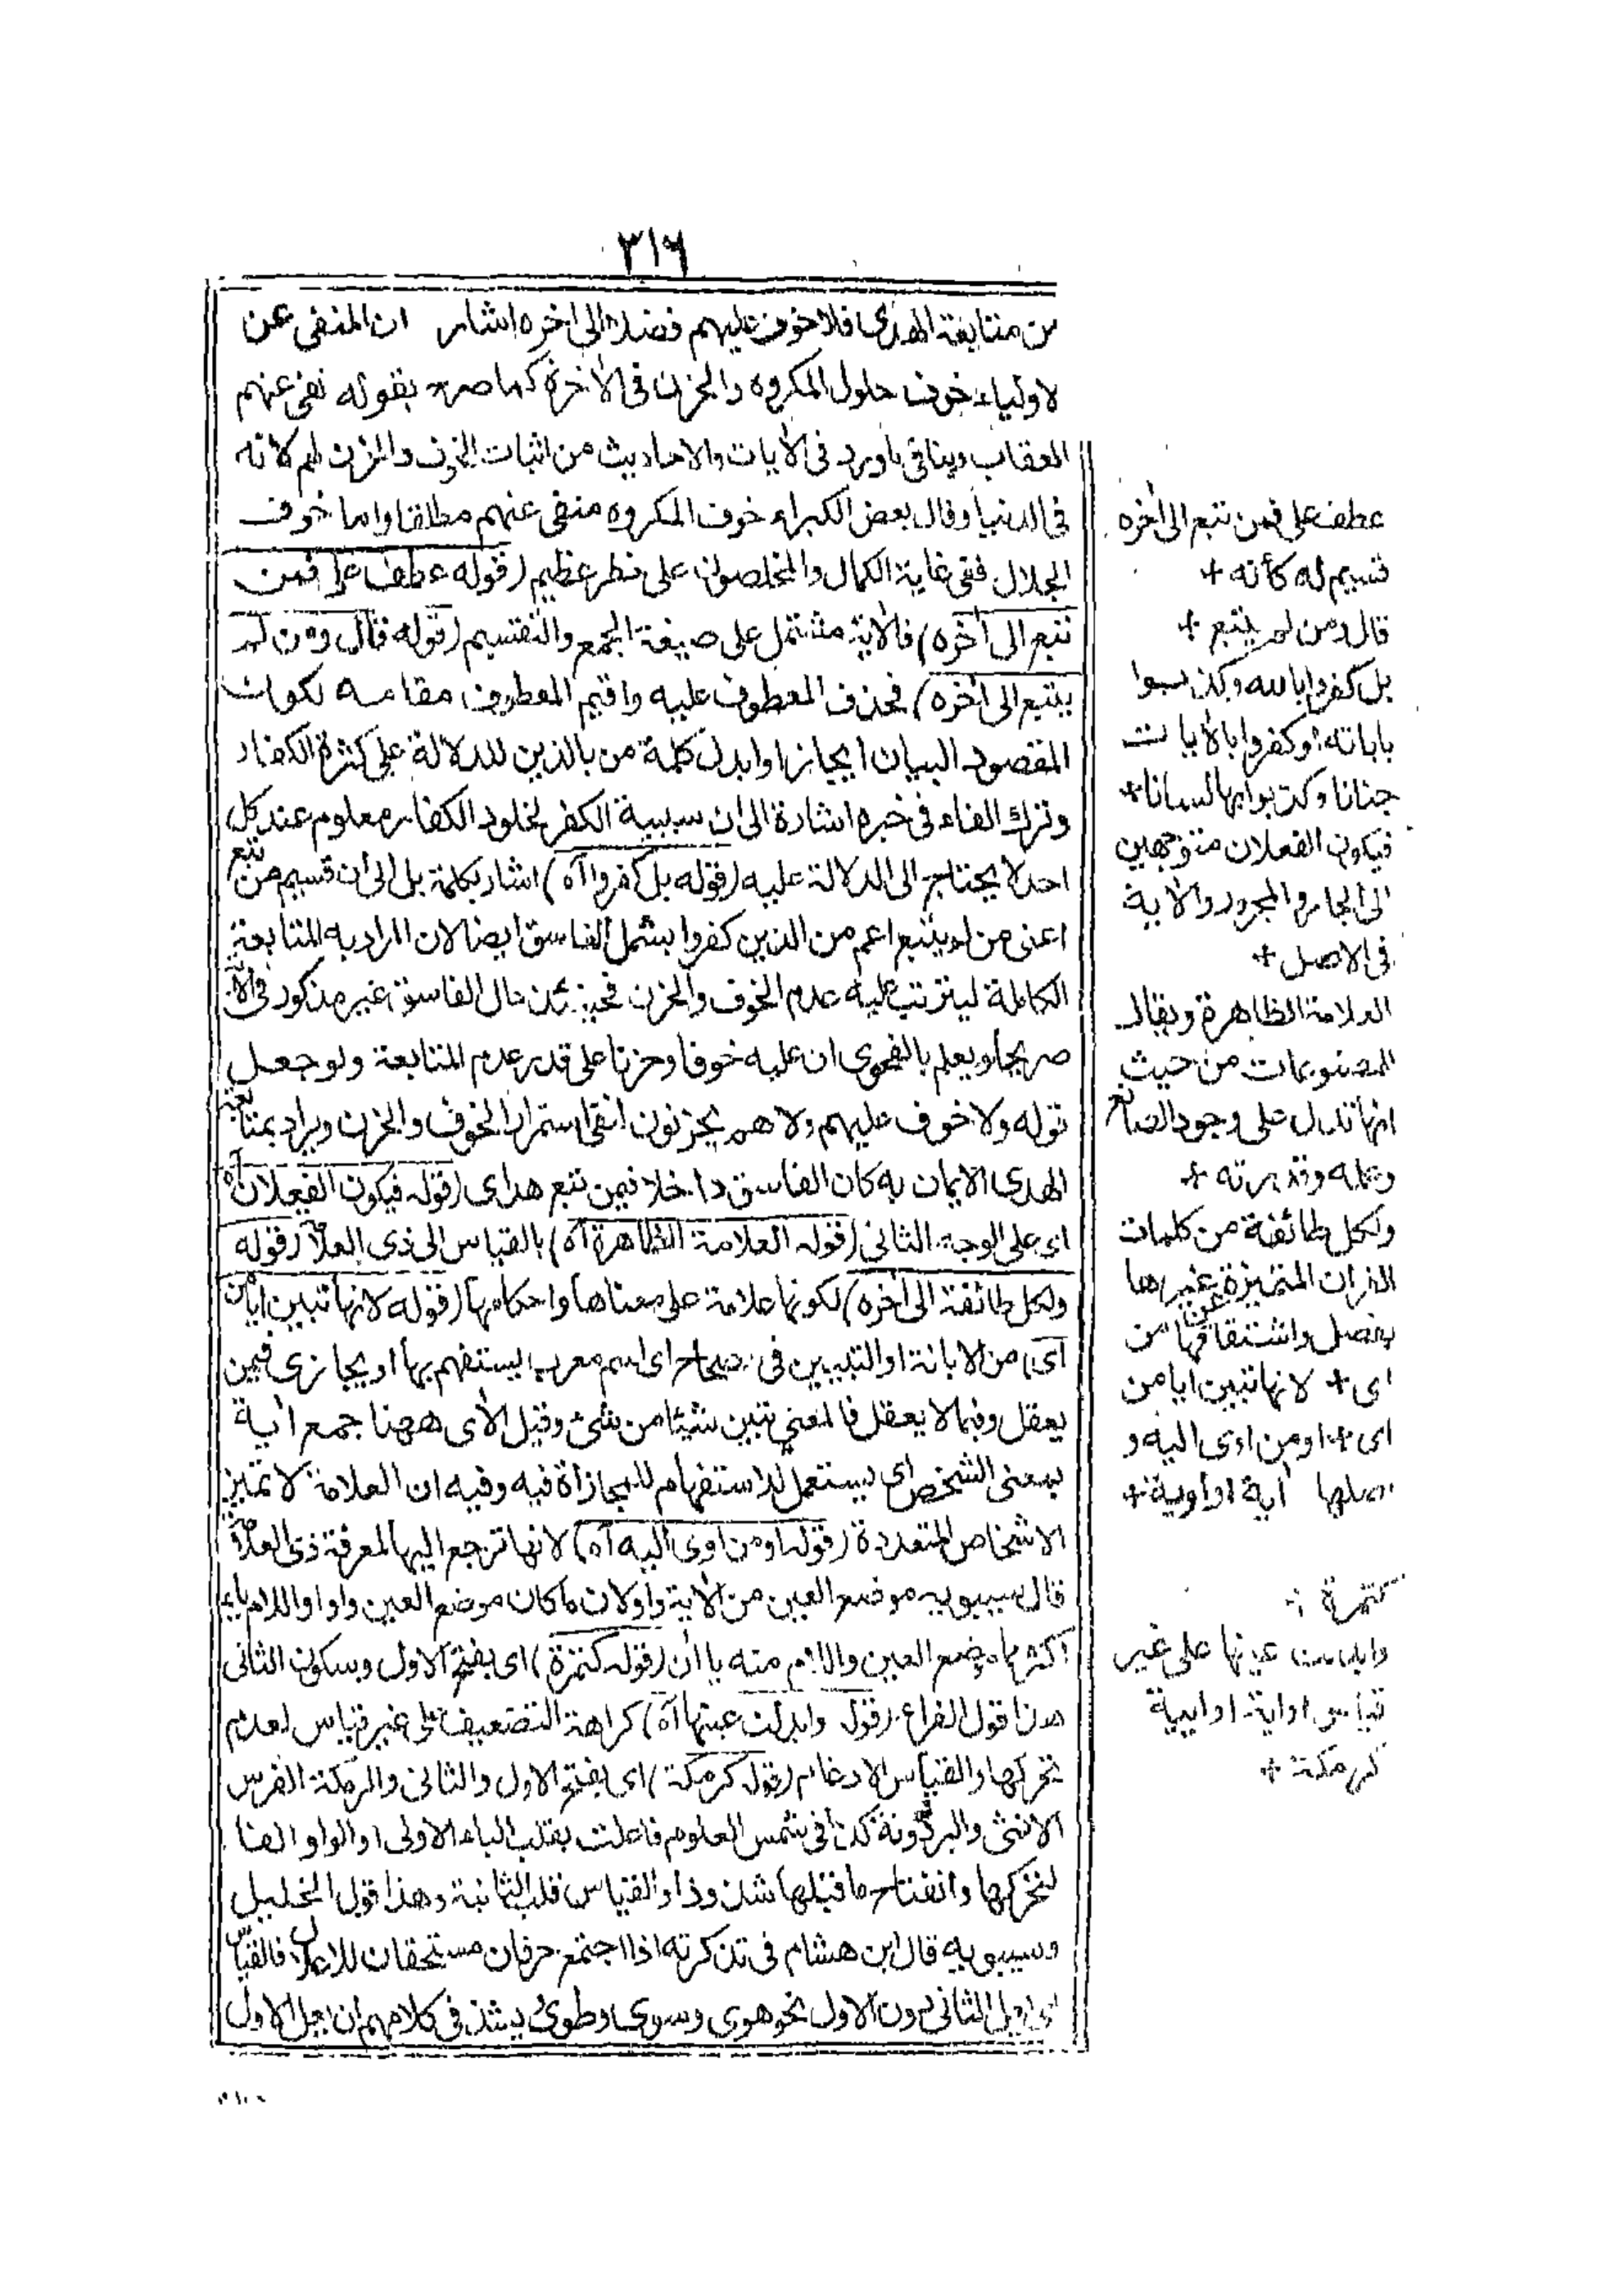 ٣١٦
من متابعة الهدى فلا خوف عليهم فضلا الى اخره اشار ان المنفى عن
لاولياء خوف حلول المكروه والحزن فى الاخرة كما صرح بقوله نفى عنهم
العقاب وينافى ما ورد فى الأيات والاحاديث من اثبات الخوف والحزن لهم لانه
فى الدنيا وقال بعض الكبراء خوف المكروه منفى عنهم مطلقا واما خوف
الجلال ففى غاية الكمال والمخلصون على خطر عظيم (قوله عطف على فمن
تبع الى أخره) فالأية مشتمل على صيغة الجمع والتقسيم (قوله قال ومن لم
يتبع الى أخره) فحذف المعطوف عليه واقيم المعطوف مقامه لكونه
المقصود البيان ايجازا وابدل كلمة من بالذين للدلالة على كثرة الكفار
وترك الفاء فى خبره اشارة الى ان سببية الكفر لخلود الكفار معلوم عند كل
احد لا يحتاج الى الدلالة عليه (قوله بل كفروا آه) اشار بكلمة بل الى ان قسيم من تبع
اعنى من لم يتبع اعم من الذين كفروا يشمل الفاسق ايضا لان المراد به المتابعة
الكاملة ليترتب عليه عدم الخوف والحزن فحينئذ حال الفاسق غير مذكور فى الأية
صريحا ويعلم بالفحوى ان عليه خوفا وحزنا على قدر عدم المتابعة ولو جعل
قوله ولا خوف عليهم ولا هم يحزنون انتفى استمرار الخوف والحزن ويراد بمتابعة
الهدى الايمان به كان الفاسق داخلا فيمن تبع هداى (قوله فيكون الفعلان آه)
اى على الوجه الثانى (قوله العلامة الظاهرة آه) بالقياس الى ذى العلامة (قوله
ولكل طائفة الى أخره) لكونها علامة على معناها واحكامها (قوله لانها تبين ايا من
اى) من الابانة او التبيين فى الصحاح اى اسم معرب يستفهم بها او يجازى فيمن
يعقل وفيما لا يعقل فالمعنى تبين شيئا من شئ وقيل الأى ههنا جمع أية
بمعنى الشخص اى يستعمل للاستفهام للمجازاة فيه وفيه ان العلامة لا تميز
الاشخاص المتعددة (قوله او من اوى اليه آه) لانها ترجع اليها لمعرفة ذى العلامة
قال سيبويه موضع العين من الأية واو لان ما كان موضع العين واوا واللام ياء
اكثر مما موضع العين واللام منه يا ان (قوله كتمرة) اى بفتح الاول وسكون الثانى
هذا قول الفراء (قوله وابدلت عينها آه) كراهة التضعيف على غير قياس لعدم
تحركها والقياس الادغام (قوله كرمكة) اى بفتح الاول والثانى والرمكة الفرس
الانثى والبرذونة كذا فى شمس العلوم فاعلت بقلب الياء الاولى او الواو الفا
لتحركها وانفتاح ما قبلها شذوذا والقياس قلب الثانية وهذا قول الخليل
وسيبويه قال ابن هشام فى تذكرته اذا اجتمع حرفان مستحقان للاعلال فالقياس
اعلال الثانى دون الاول نحو هوى وسوى وطوى يشذ فى كلامهم ان يعل الاول
عطف على فمن تبع الى أخره
قسيم له كأنه +
قال ومن لم يتبع +
بل كفروا بالله وكذبوا
باياته او كفروا بالأيات
جنانا وكذبوا بها لسانا +
فيكون الفعلان متوجهين
الى الجار والمجرور والأية
فى الاصل +
العلامة الظاهرة ويقال
للمصنوعات من حيث
انها تدل على وجود الصانع
وعلمه وقدرته +
ولكل طائفة من كلمات
القران المتميزة عن غيرها
بفصل واشتقاقها من
اى + لانها تبين ايا من
اى + او من اوى اليه و
اصلها أية او اوية +
كتمرة +
وابدلت عينها على غير
قياس او اية او ايية
كرمكة +